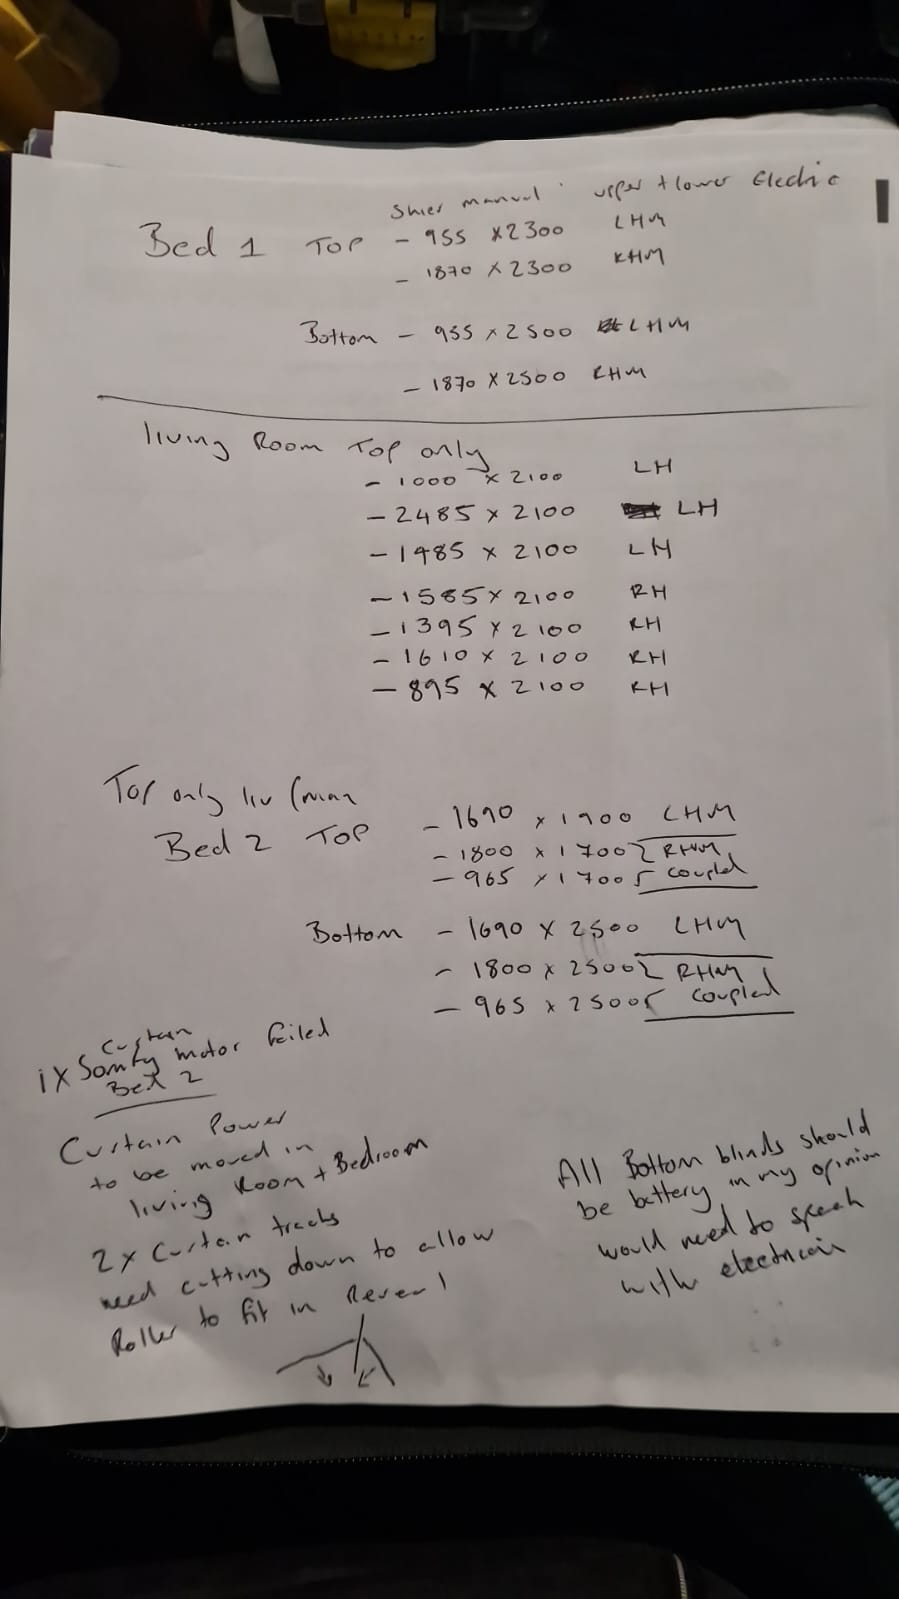 manual upper + lower Electric
Bed 1 TOP - 955 x 2300 LHM
- 1870 x 2300 RHM
Bottom - 955 x 2500 LHM
- 1870 x 2500 RHM
living Room Top only
- 1000 x 2100 LH
- 2485 x 2100 LH
- 1485 x 2100 LH
- 1585 x 2100 RH
- 1395 x 2100 RH
- 1610 x 2100 RH
- 895 x 2100 RH
Top only liv
Bed 2 TOP - 1690 x 1900 LHM
- 1800 x 1700 RHM
- 965 x 1700 coupled
Bottom - 1690 x 2500 LHM
- 1800 x 2500 RHM
- 965 x 2500 coupled
Curtain
1 x Somfy motor failed
Bed 2
Curtain Power
to be moved in
living Room + Bedroom
2 x Curtain tracks
need cutting down to allow
Roller to fit in Reveal
All Bottom blinds should
be battery in my opinion
would need to speak
with electrician